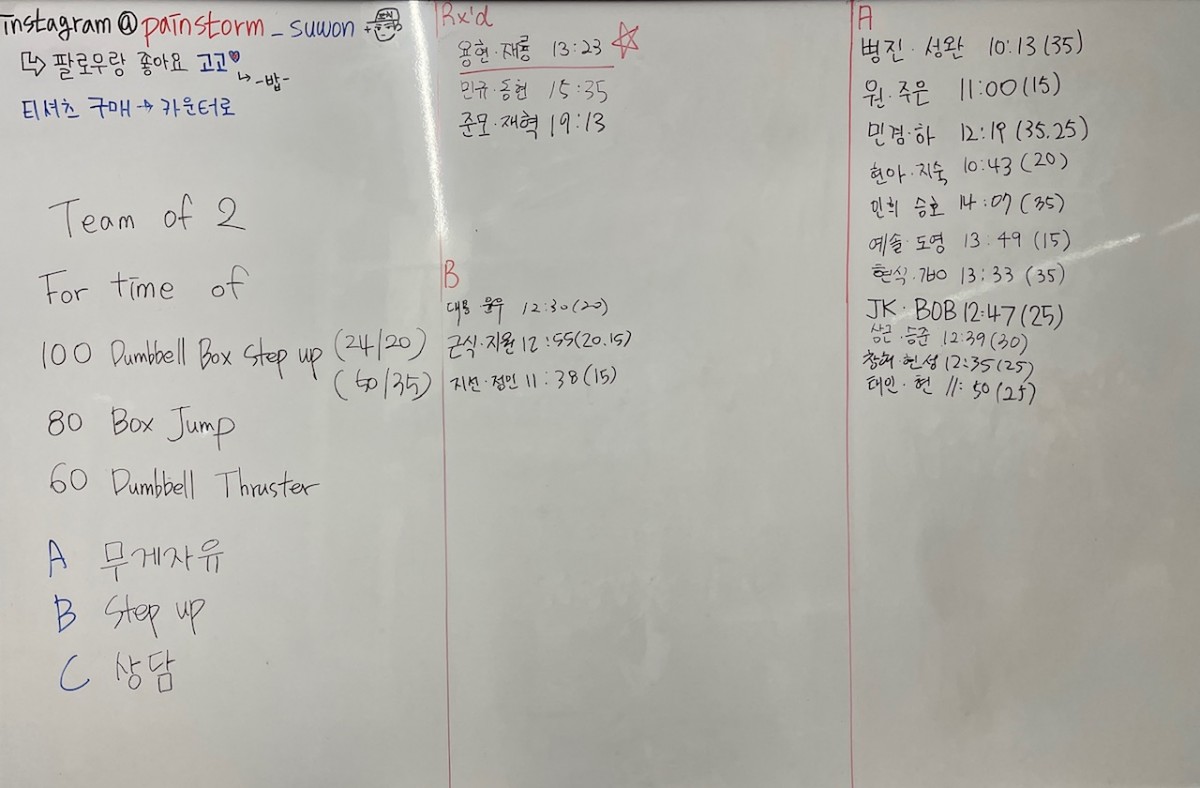 instagram @ painstorm_suwon +
↳ 팔로우랑 좋아요 고고♥
↳ -밥-
티셔츠 구매 → 카운터로
Team of 2
For time of
100 Dumbbell Box Step up (24/20)
(50/35)
80 Box Jump
60 Dumbbell Thruster
A 무게자유
B Step up
C 상담
Rx'd
용현·재룡 13:23 ☆
민규·동현 15:35
준모·재혁 19:13
B
12:30(20)
근식·지원 12:55(20.15)
지선·정민 11:38(15)
A
병진·성완 10:13(35)
원·주은 11:00(15)
민경·하 12:19(35.25)
현아·지숙 10:43(20)
민희 승호 14:07(35)
예솔·도영 13:49(15)
현식· 13:33(35)
JK·BOB 12:47(25)
상근·승준 12:39(30)
12:35(25)
태인·현 11:50(25)